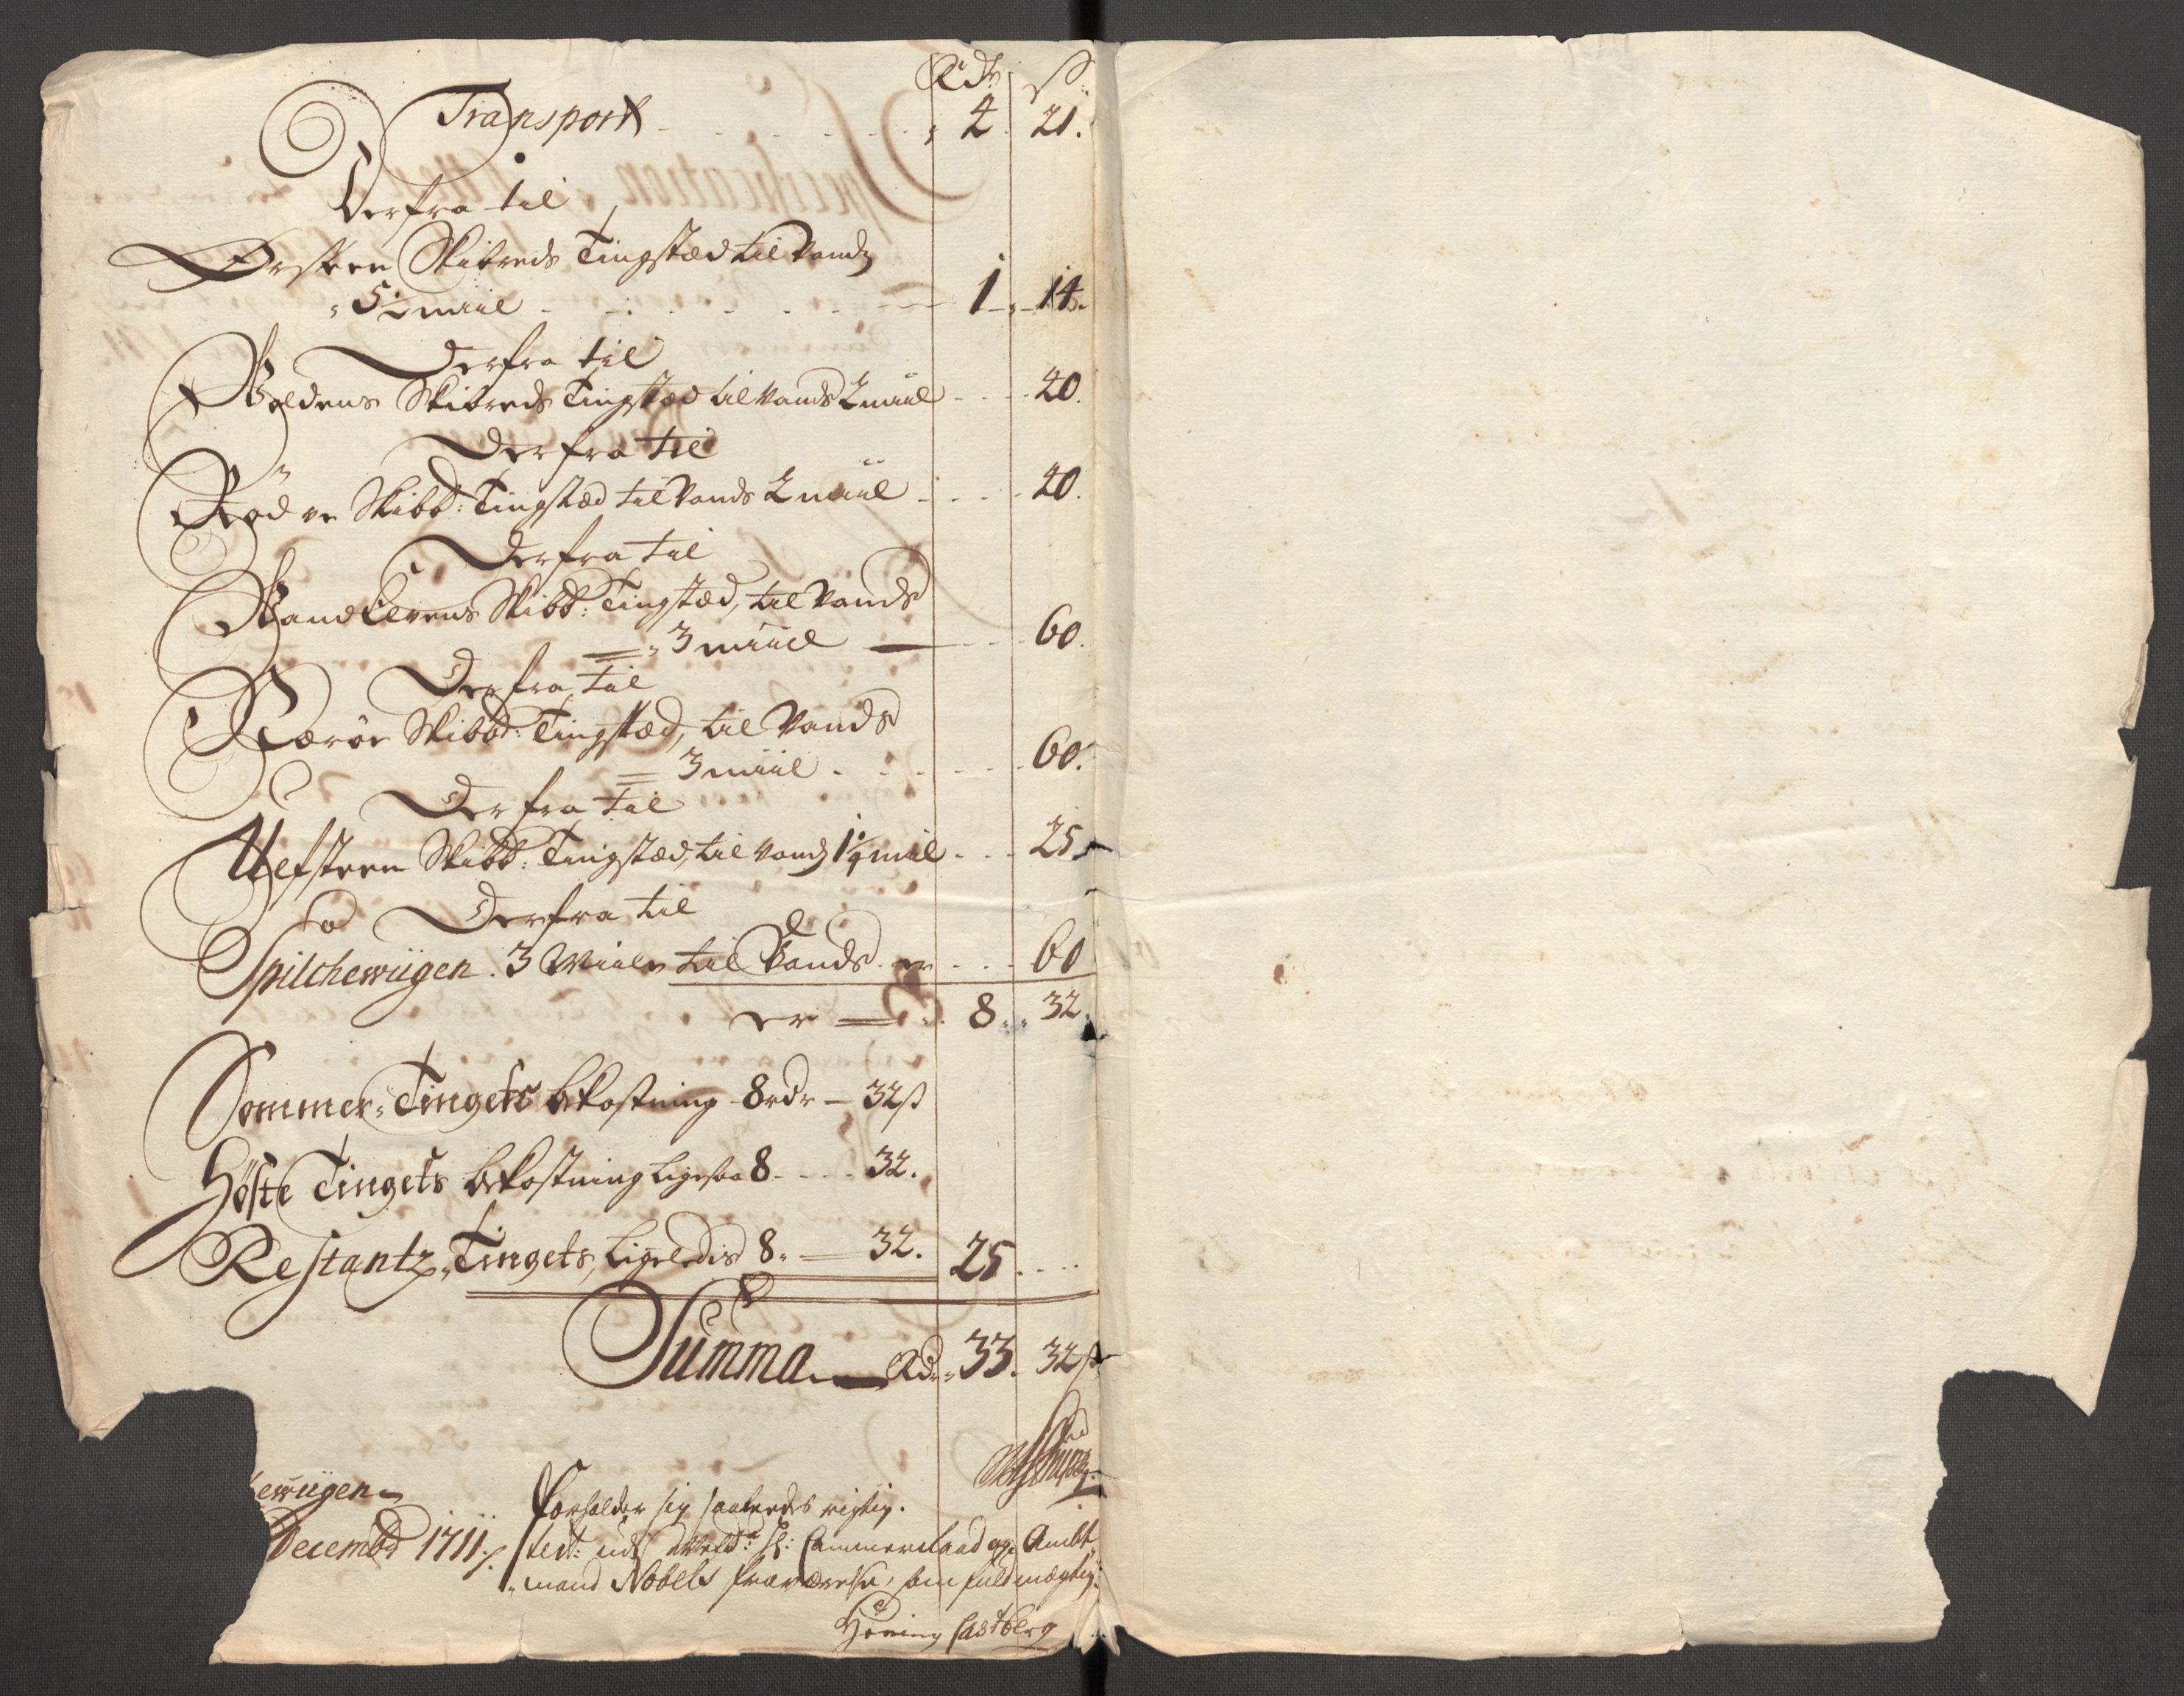 Rdr ß
Transport - - - - 4. 21.
Derfra til
Ørsteen Skibreds Tingstæd til Vandz
5½ miil - - - 1. 14.
Derfra til
Voldens Skibreds Tingstæd til Vands 2 miil - - 20.
Derfra til
Rødve Skibd: Tingstæd til Vands 2 miil - - - 40.
Derfra til
Vand Elvens Skibd: Tingstæd, til Vands
3 miil - - 60.
Derfra til
Skibd: Tingstæd, til Vands
3 miil - - - 60.
Derfra til
Ulfsteen Skibd: Tingstæd, til Vandz 1¼ miil - - 25
Derfra til
Spilchewiigen. 3 Miile til Vands er - - 60
er 8. 32.
Sommer-Tingets bekostning 8 rdr - 32 ß
Høste Tingets bekostning ligesaa 8 - - - 32.
Restantz-Tingets, ligeledis 8. 32. 25. - - -
Summa Rdr. 33. 32 ß
ewiigen
Decembr 1711.
forholder sig saaledes rigtig.
test: udj Cammerraad og Ambt
mand Nobels fraværelse, som fuldmægtig.
Castberg